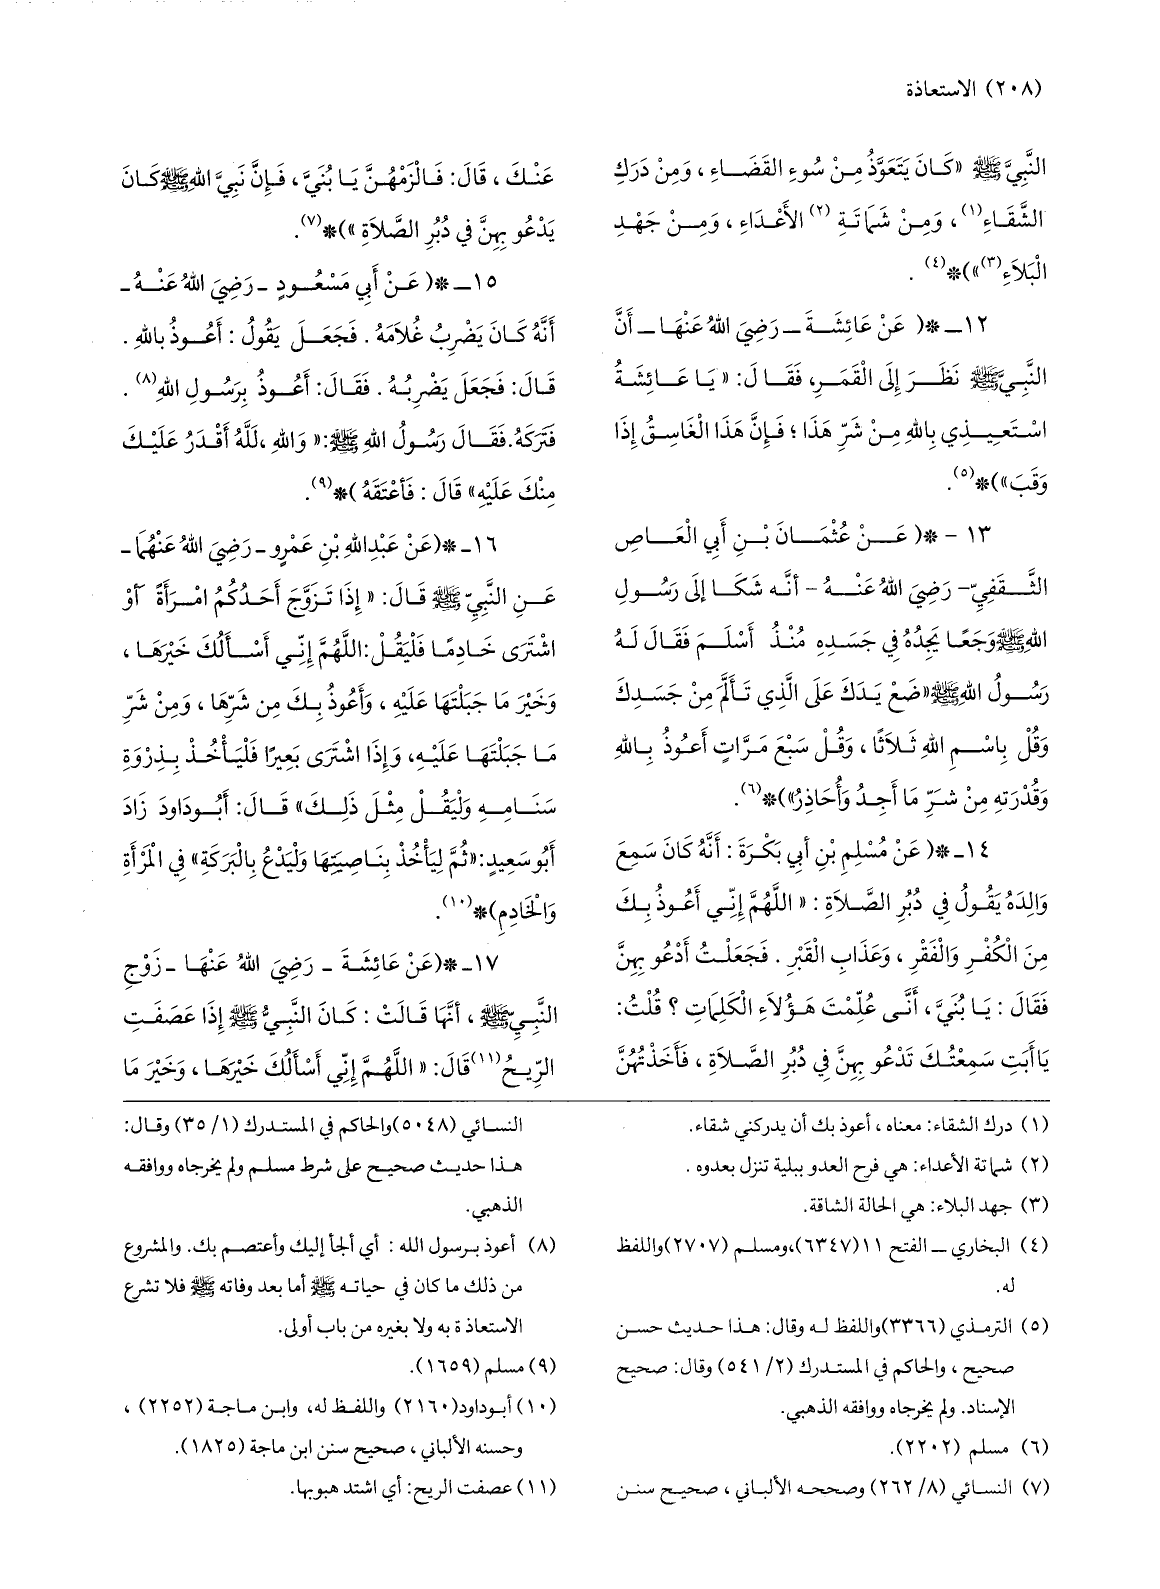 (٢٠٨) الاستعاذة
النَّبِيَّ ﷺ «كَانَ يَتَعَوَّذُ مِنْ سُوءِ القَضَاءِ ، وَمِنْ دَرَكِ
الشَّقَاءِ(١) ، وَمِنْ شَمَاتَةِ (٢) الأَعْدَاءِ ، وَمِنْ جَهْدِ
الْبَلَاءِ(٣)»)*(٤) .
١٢ـ *( عَنْ عَائِشَةَ ـ رَضِيَ اللهُ عَنْهَا ـ أَنَّ
النَّبِيَّ ﷺ نَظَرَ إِلَى الْقَمَرِ، فَقَالَ: «يَا عَائِشَةُ
اسْتَعِيذِي بِاللهِ مِنْ شَرِّ هَذَا ؛ فَإِنَّ هَذَا الْغَاسِقُ إِذَا
وَقَبَ»)*(٥).
١٣ - *( عَنْ عُثْمَانَ بْنِ أَبِي الْعَاصِ
الثَّقَفِيِّ- رَضِيَ اللهُ عَنْهُ - أنَّه شَكَا إِلَى رَسُولِ
اللهِ ﷺ وَجَعًا يَجِدُهُ فِي جَسَدِهِ مُنْذُ أَسْلَمَ فَقَالَ لَهُ
رَسُولُ اللهِ ﷺ «ضَعْ يَدَكَ عَلَى الَّذِي تَأَلَّمَ مِنْ جَسَدِكَ
وَقُلْ بِاسْمِ اللهِ ثَلَاثًا ، وَقُلْ سَبْعَ مَرَّاتٍ أَعُوذُ بِاللهِ
وَقُدْرَتِهِ مِنْ شَرِّ مَا أَجِدُ وَأُحَاذِرُ»)*(٦).
١٤ـ *( عَنْ مُسْلِمِ بْنِ أَبِي بَكْرَةَ : أَنَّهُ كَانَ سَمِعَ
وَالِدَهُ يَقُولُ فِي دُبُرِ الصَّلَاةِ : «اللَّهُمَّ إِنِّي أَعُوذُ بِكَ
مِنَ الْكُفْرِ وَالْفَقْرِ ، وَعَذَابِ الْقَبْرِ . فَجَعَلْتُ أَدْعُو بِهِنَّ
فَقَالَ : يَا بُنَيَّ ، أَنَّى عُلِّمْتَ هَؤُلَاءِ الْكَلِمَاتِ ؟ قُلْتُ:
يَا أَبَتِ سَمِعْتُكَ تَدْعُو بِهِنَّ فِي دُبُرِ الصَّلَاةِ ، فَأَخَذْتُهُنَّ
عَنْكَ ، قَالَ: فَالْزَمْهُنَّ يَا بُنَيَّ ، فَإِنَّ نَبِيَّ اللهِ ﷺ كَانَ
يَدْعُو بِهِنَّ فِي دُبُرِ الصَّلَاةِ »)*(٧).
١٥ـ *( عَنْ أَبِي مَسْعُودٍ ـ رَضِيَ اللهُ عَنْهُ ـ
أَنَّهُ كَانَ يَضْرِبُ غُلَامَهُ . فَجَعَلَ يَقُولُ : أَعُوذُ بِاللهِ .
قَالَ: فَجَعَلَ يَضْرِبُهُ . فَقَالَ: أَعُوذُ بِرَسُولِ اللهِ(٨) .
فَتَرَكَهُ. فَقَالَ رَسُولُ اللهِ ﷺ: «وَاللهِ ،لَلَّهُ أَقْدَرُ عَلَيْكَ
مِنْكَ عَلَيْهِ» قَالَ : فَأَعْتَقَهُ )*(٩).
١٦ـ *(عَنْ عَبْدِاللهِ بْنِ عَمْرٍو ـ رَضِيَ اللهُ عَنْهُمَا ـ
عَنِ النَّبِيِّ ﷺ قَالَ: «إِذَا تَزَوَّجَ أَحَدُكُمُ امْرَأَةً أَوْ
اشْتَرَى خَادِمًا فَلْيَقُلْ: اللَّهُمَّ إِنِّي أَسْأَلُكَ خَيْرَهَا ،
وَخَيْرَ مَا جَبَلْتَهَا عَلَيْهِ ، وَأَعُوذُ بِكَ مِن شَرِّهَا ، وَمِنْ شَرِّ
مَا جَبَلْتَهَا عَلَيْهِ، وَإِذَا اشْتَرَى بَعِيرًا فَلْيَأْخُذْ بِذِرْوَةِ
سَنَامِهِ وَلْيَقُلْ مِثْلَ ذَلِكَ» قَالَ: أَبُودَاودَ زَادَ
أَبُو سَعِيدٍ: «ثُمَّ لِيَأْخُذْ بِنَاصِيَتِهَا وَلْيَدْعُ بِالْبَرَكَةِ» فِي الْمَرْأَةِ
وَالْخَادِمِ)*(١٠).
١٧ـ *(عَنْ عَائِشَةَ ـ رَضِيَ اللهُ عَنْهَا ـ زَوْجِ
النَّبِيِّ ﷺ ، أَنَّهَا قَالَتْ : كَانَ النَّبِيُّ ﷺ إِذَا عَصَفَتِ
الرِّيحُ(١١) قَالَ: «اللَّهُمَّ إِنِّي أَسْأَلُكَ خَيْرَهَا ، وَخَيْرَ مَا
(١) درك الشقاء: معناه ، أعوذ بك أن يدركني شقاء.
(٢) شماتة الأعداء: هي فرح العدو ببلية تنزل بعدوه .
(٣) جهد البلاء: هي الحالة الشاقة.
(٤) البخاري ـ الفتح ١١(٦٣٤٧)،ومسلم (٢٧٠٧)واللفظ
له.
(٥) الترمذي (٣٣٦٦)واللفظ له وقال: هذا حديث حسن
صحيح ، والحاكم في المستدرك (٢/ ٥٤١) وقال: صحيح
الإسناد. ولم يخرجاه ووافقه الذهبي.
(٦) مسلم (٢٢٠٢).
(٧) النسائي (٨/ ٢٦٢) وصححه الألباني ، صحيح سنن
النسائي (٥٠٤٨)والحاكم في المستدرك (١/ ٣٥) وقال:
هذا حديث صحيح على شرط مسلم ولم يخرجاه ووافقه
الذهبي.
(٨) أعوذ برسول الله : أي ألجأ إليك وأعتصم بك. والمشروع
من ذلك ما كان في حياته ﷺ أما بعد وفاته ﷺ فلا تشرع
الاستعاذة به ولا بغيره من باب أولى.
(٩) مسلم (١٦٥٩).
(١٠) أبوداود(٢١٦٠) واللفظ له، وابن ماجة (٢٢٥٢) ،
وحسنه الألباني ، صحيح سنن ابن ماجة (١٨٢٥).
(١١) عصفت الريح: أي اشتد هبوبها.